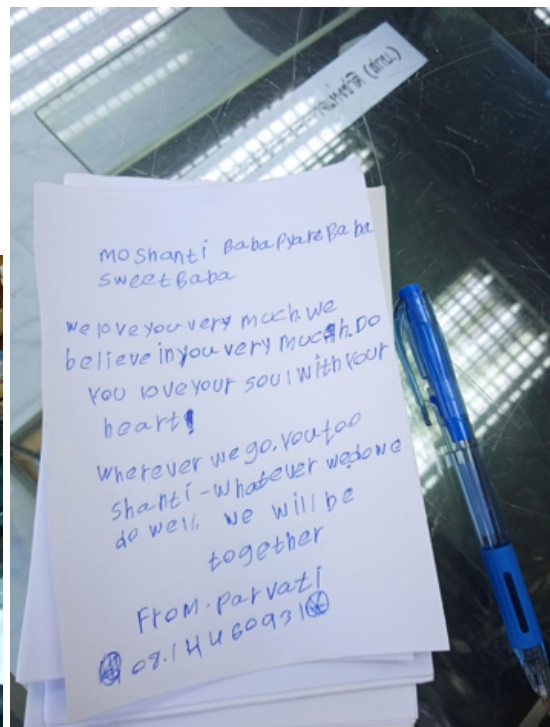 (สกบ)
Mo Shanti Baba Pyare Baba
sweet Baba
we love you very much. we
believe in you very much. Do
you love your soul with your
heart!
wherever we go. you too
shanti - whatever we done
do well, we will be
together
From. parvati
08.14460931